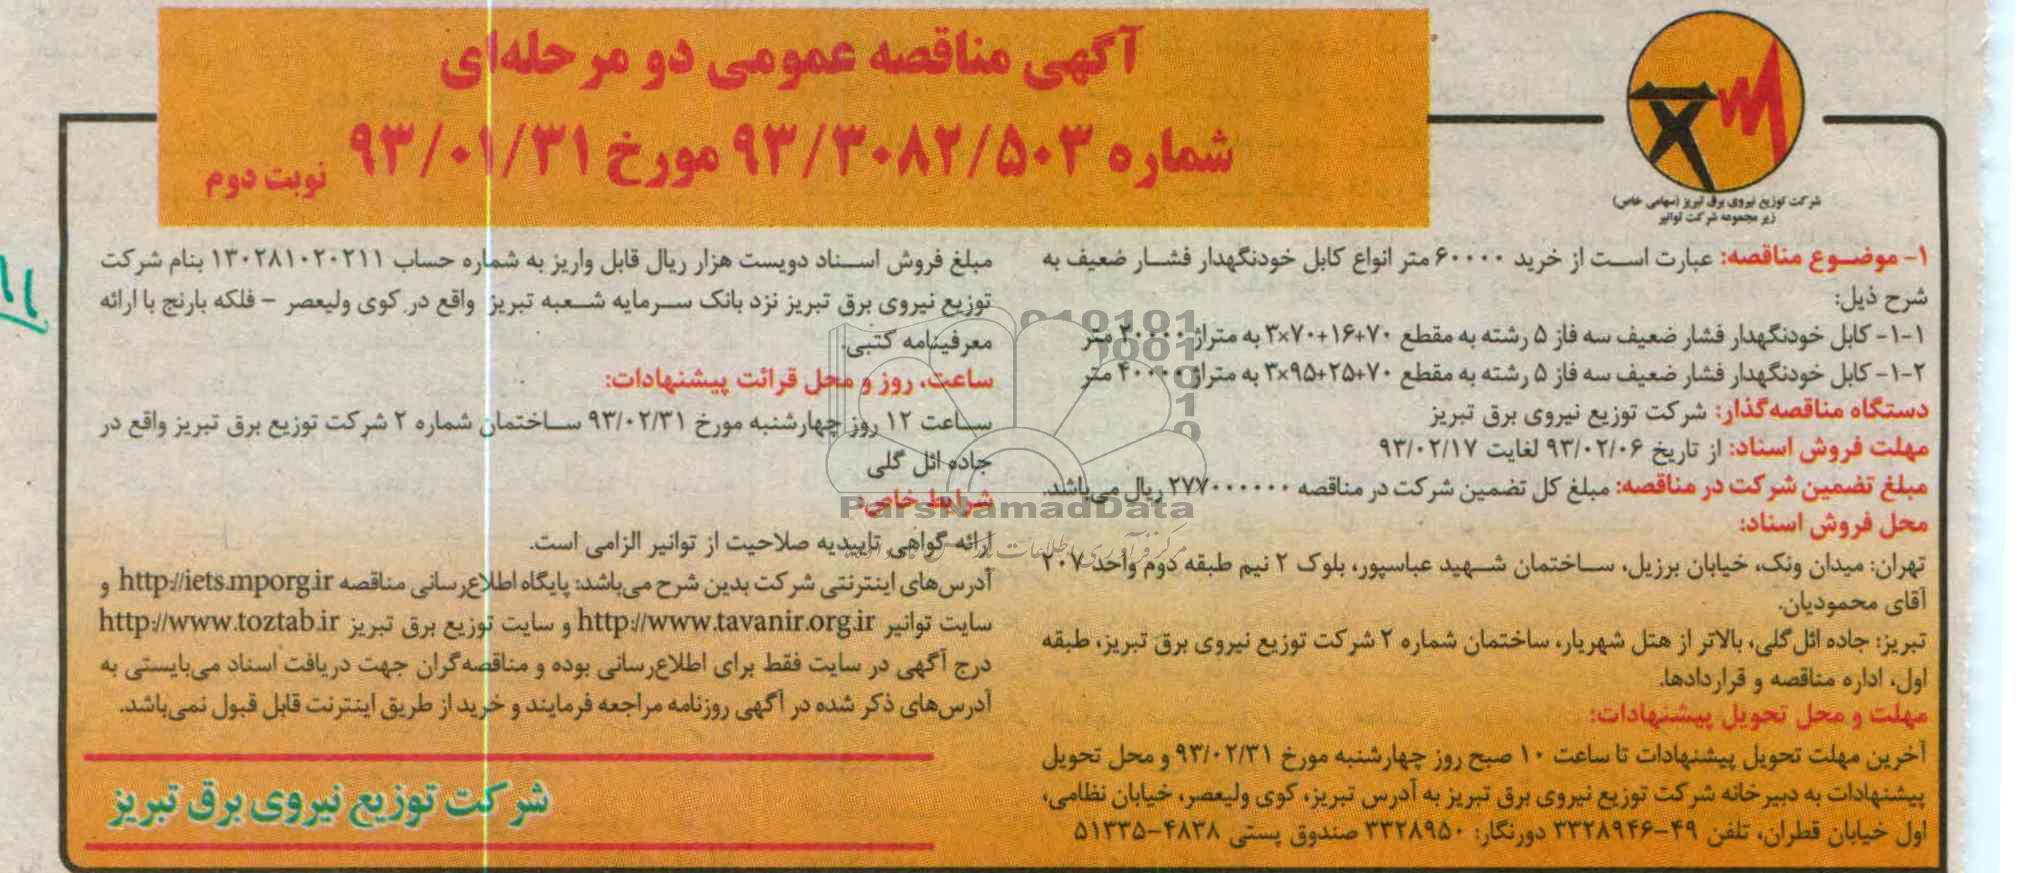 آگهی مناقصه عمومی دو مرحله‌ای
شماره ۹۳/۳۰۸۲/۵۰۳ مورخ ۹۳/۰۱/۳۱ نوبت دوم
شرکت توزیع نیروی برق تبریز (سهامی خاص)
زیر مجموعه شرکت توانیر
۱- موضــوع مناقصه: عبارت اســت از خرید ۶۰۰۰۰ متر انواع کابل خودنگهدار فشــار ضعیف به
شرح ذیل:
۱-۱- کابل خودنگهدار فشار ضعیف سه فاز ۵ رشته به مقطع ۷۰+۱۶+۷۰×۳ به متراژ ۲۰۰۰۰ متر
۱-۲- کابل خودنگهدار فشار ضعیف سه فاز ۵ رشته به مقطع ۷۰+۲۵+۹۵×۳ به متراژ ۴۰۰۰۰ متر
دستگاه مناقصه‌گذار: شرکت توزیع نیروی برق تبریز
مهلت فروش اسناد: از تاریخ ۹۳/۰۲/۰۶ لغایت ۹۳/۰۲/۱۷
مبلغ تضمین شرکت در مناقصه: مبلغ کل تضمین شرکت در مناقصه ۲۷۷۰۰۰۰۰۰ ریال می‌باشد.
محل فروش اسناد:
تهران: میدان ونک، خیابان برزیل، ســاختمان شــهید عباسپور، بلوک ۲ نیم طبقه دوم واحد ۲۰۷
آقای محمودیان.
تبریز: جاده ائل‌گلی، بالاتر از هتل شهریار، ساختمان شماره ۲ شرکت توزیع نیروی برق تبریز، طبقه
اول، اداره مناقصه و قراردادها.
مهلت و محل تحویل پیشنهادات:
آخرین مهلت تحویل پیشنهادات تا ساعت ۱۰ صبح روز چهارشنبه مورخ ۹۳/۰۲/۳۱ و محل تحویل
پیشنهادات به دبیرخانه شرکت توزیع نیروی برق تبریز به آدرس تبریز، کوی ولیعصر، خیابان نظامی،
اول خیابان قطران، تلفن ۴۹-۳۳۲۸۹۴۶ دورنگار: ۳۳۲۸۹۵۰ صندوق پستی ۴۸۳۸-۵۱۳۳۵
مبلغ فروش اســناد دویست هزار ریال قابل واریز به شماره حساب ۱۳۰۲۸۱۰۲۰۲۱۱ بنام شرکت
توزیع نیروی برق تبریز نزد بانک ســرمایه شــعبه تبریز واقع در کوی ولیعصر - فلکه بارنج با ارائه
معرفینامه کتبی.
ساعت، روز و محل قرائت پیشنهادات:
ســاعت ۱۲ روز چهارشنبه مورخ ۹۳/۰۲/۳۱ ســاختمان شماره ۲ شرکت توزیع برق تبریز واقع در
جاده ائل گلی
شرایط خاص:
ارائه گواهی تاییدیه صلاحیت از توانیر الزامی است.
آدرس‌های اینترنتی شرکت بدین شرح می‌باشد: پایگاه اطلاع‌رسانی مناقصه http://iets.mporg.ir و
سایت توانیر http://www.tavanir.org.ir و سایت توزیع برق تبریز http://www.toztab.ir
درج آگهی در سایت فقط برای اطلاع‌رسانی بوده و مناقصه‌گران جهت دریافت اسناد می‌بایستی به
آدرس‌های ذکر شده در آگهی روزنامه مراجعه فرمایند و خرید از طریق اینترنت قابل قبول نمی‌باشد.
شرکت توزیع نیروی برق تبریز
ParsNamadData